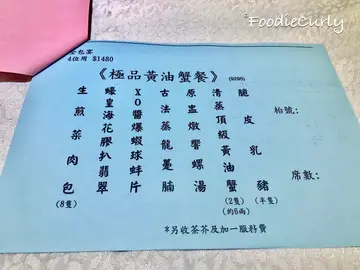 FoodieCurly
包宴
4位用 $1480
《極品黃油蟹餐》 (9295)
枱號:
席數:
脆皮乳豬
(半隻)
清蒸頂級黃油蟹
(2隻)
(約6兩)
原盅燉響螺湯
古法蒸龍躉腩
XO醬爆蝦球蚌片
蠔皇海花膠扒翡翠
生煎菜肉包
(8隻)
*另收茶芥及加一服務費